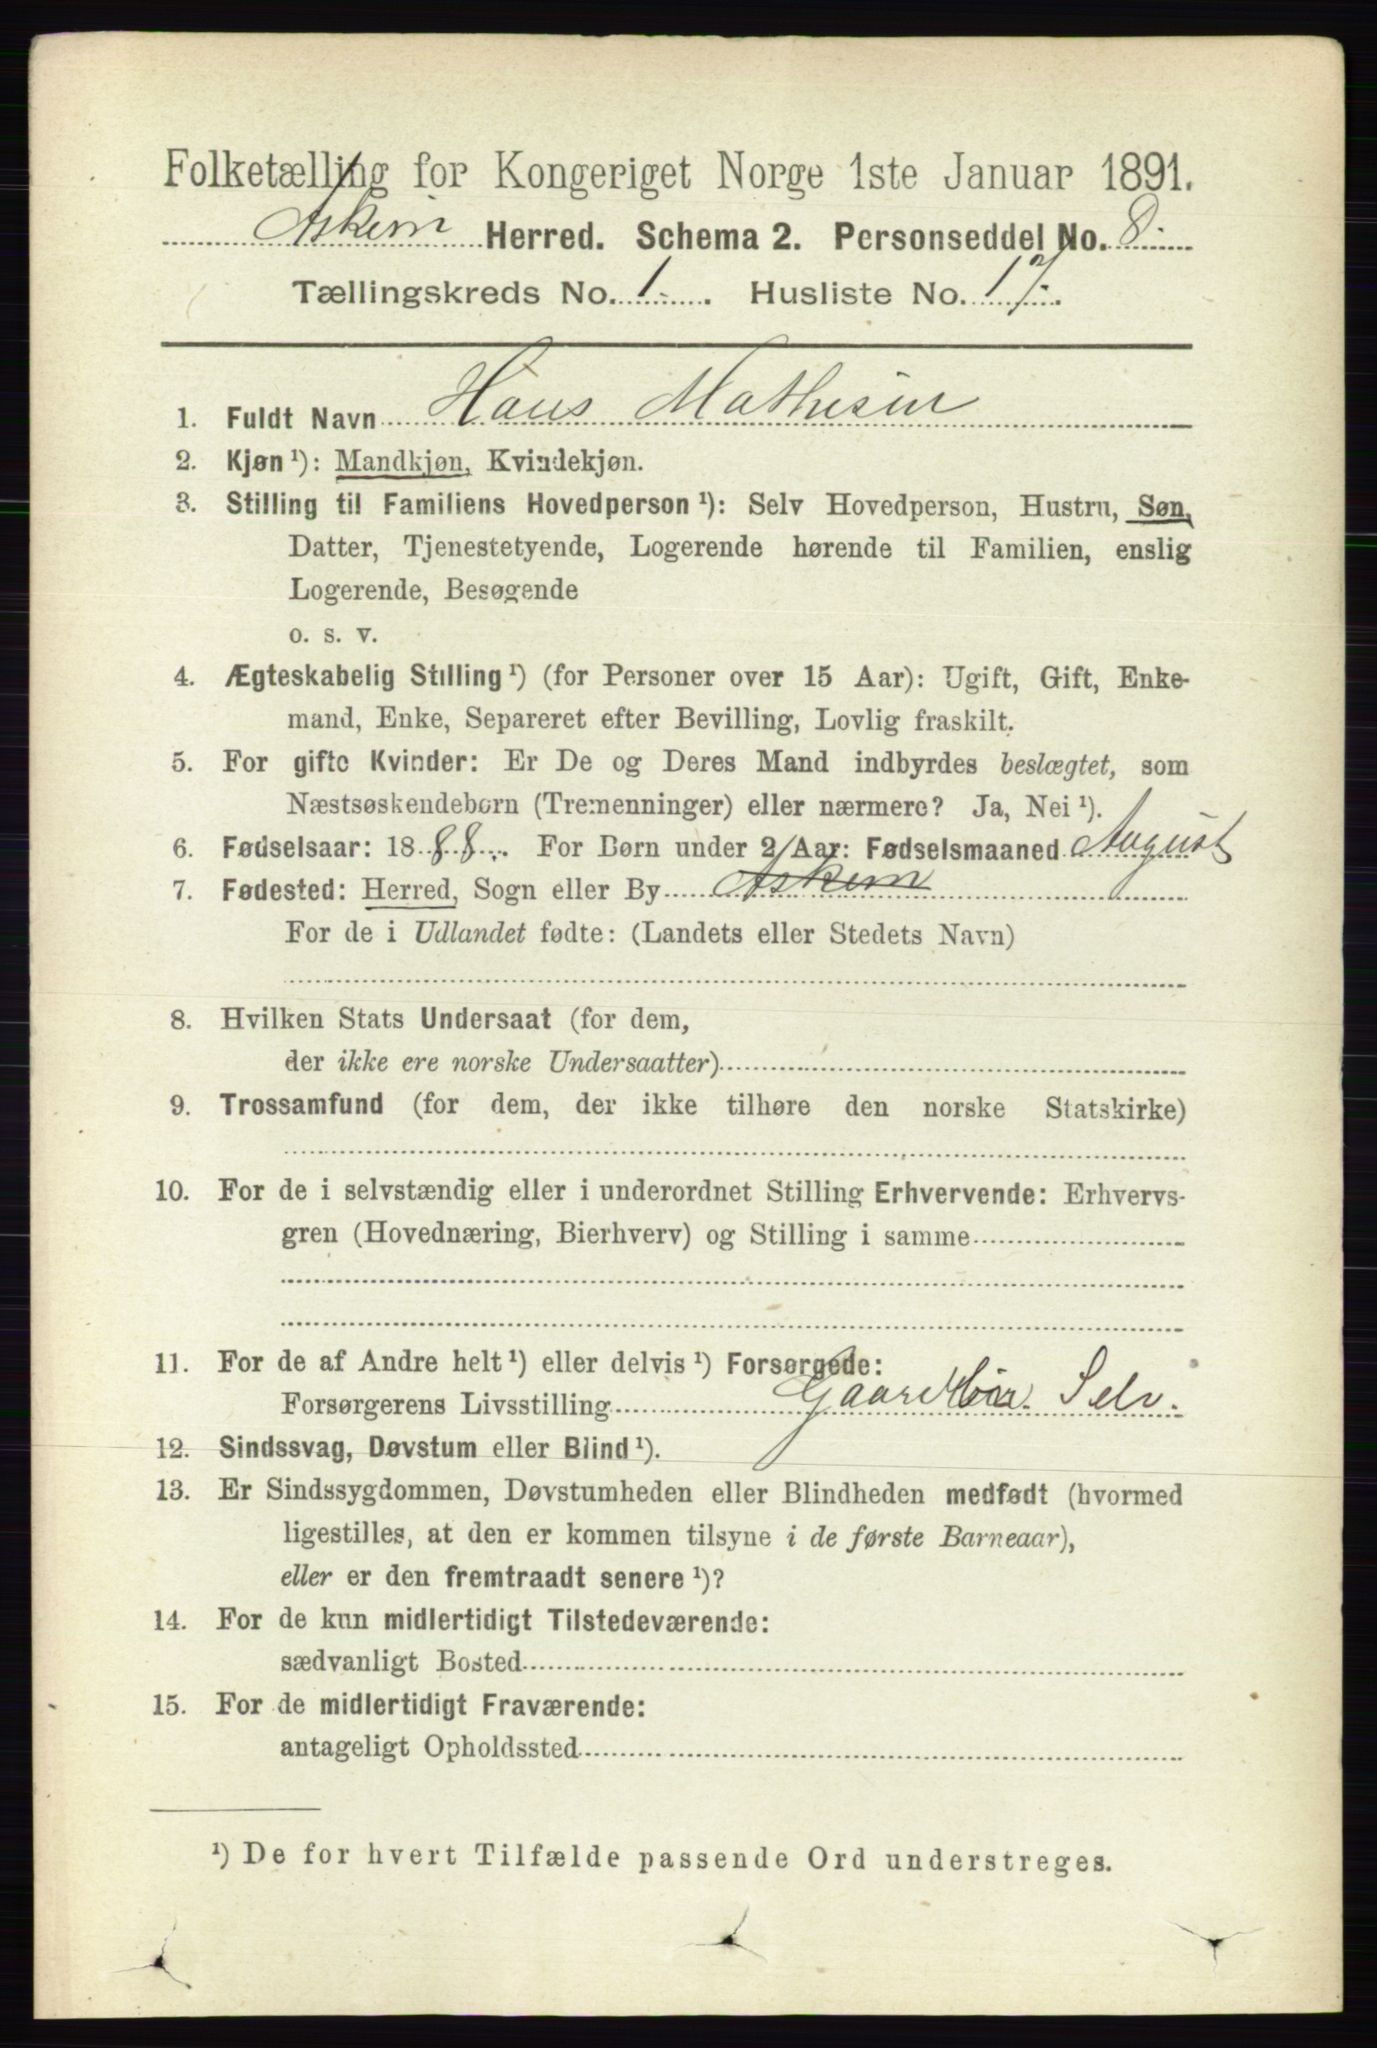 Folketælling for Kongeriget Norge 1ste Januar 1891.
Askim Herred. Schema 2. Personseddel No. 8.
Tællingskreds No. 1. Husliste No. 17.
1. Fuldt Navn Hans Mathisen
2. Kjøn ¹): Mandkjøn, Kvindekjøn.
3. Stilling til Familiens Hovedperson ¹): Selv Hovedperson, Hustru, Søn,
Datter, Tjenestetyende, Logerende hørende til Familien, enslig
Logerende, Besøgende
o. s. v.
4. Ægteskabelig Stilling ¹) (for Personer over 15 Aar): Ugift, Gift, Enke-
mand, Enke, Separeret efter Bevilling, Lovlig fraskilt.
5. For gifte Kvinder: Er De og Deres Mand indbyrdes beslægtet, som
Næstsøskendebørn (Tremenninger) eller nærmere? Ja, Nei ¹).
6. Fødselsaar: 1888. For Børn under 2 Aar: Fødselsmaaned August
7. Fødested: Herred, Sogn eller By Askim
For de i Udlandet fødte: (Landets eller Stedets Navn)
8. Hvilken Stats Undersaat (for dem,
der ikke ere norske Undersaatter)
9. Trossamfund (for dem, der ikke tilhøre den norske Statskirke)
10. For de i selvstændig eller i underordnet Stilling Erhvervende: Erhvervs-
gren (Hovednæring, Bierhverv) og Stilling i samme
11. For de af Andre helt ¹) eller delvis ¹) Forsørgede:
Forsørgerens Livsstilling Selv.
12. Sindssvag, Døvstum eller Blind ¹).
13. Er Sindssygdommen, Døvstumheden eller Blindheden medfødt (hvormed
ligestilles, at den er kommen tilsyne i de første Barneaar),
eller er den fremtraadt senere ¹)?
14. For de kun midlertidigt Tilstedeværende:
sædvanligt Bosted
15. For de midlertidigt Fraværende:
antageligt Opholdssted
¹) De for hvert Tilfælde passende Ord understreges.